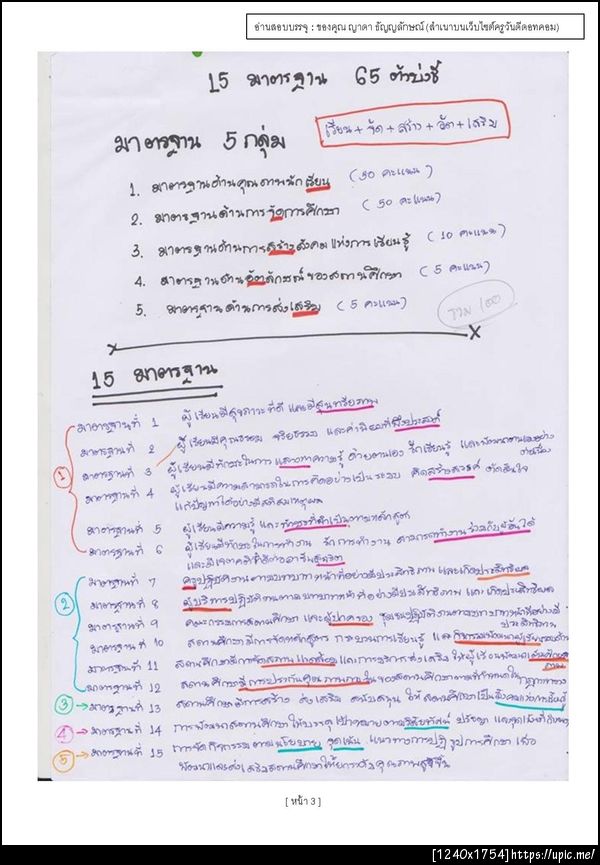 อ่านสอบบรรจุ : ของคุณ ญาดา ธัญญลักษณ์ (สำเนาบนเว็บไซต์ครูวันดีดอทคอม)
15 มาตรฐาน 65 ตัวบ่งชี้
เรียน + จัด + สร้าง + อัต + เสริม
มาตรฐาน 5 กลุ่ม
1. มาตรฐานด้านคุณภาพนักเรียน (30 คะแนน)
2. มาตรฐานด้านการจัดการศึกษา (50 คะแนน)
3. มาตรฐานด้านการสร้างสังคมแห่งการเรียนรู้ (10 คะแนน)
4. มาตรฐานด้านอัตลักษณ์ของสถานศึกษา (5 คะแนน)
5. มาตรฐานด้านการส่งเสริม (5 คะแนน)
รวม 100
15 มาตรฐาน
1
มาตรฐานที่ 1 ผู้เรียนมีสุขภาวะที่ดี และมีสุนทรียภาพ
มาตรฐานที่ 2 ผู้เรียนมีคุณธรรม จริยธรรม และค่านิยมที่พึงประสงค์
มาตรฐานที่ 3 ผู้เรียนมีทักษะในการแสวงหาความรู้ ด้วยตนเอง รักเรียนรู้ และพัฒนาตนเองอย่าง
ต่อเนื่อง
มาตรฐานที่ 4 ผู้เรียนมีความสามารถในการคิดอย่างเป็นระบบ คิดสร้างสรรค์ ตัดสินใจ
แก้ปัญหาได้อย่างมีสติสมเหตุผล
มาตรฐานที่ 5 ผู้เรียนมีความรู้ และทักษะที่จำเป็นตามหลักสูตร
มาตรฐานที่ 6 ผู้เรียนมีทักษะในการทำงาน รักการทำงาน สามารถทำงานร่วมกับผู้อื่นได้
และมีเจตคติที่ดีต่ออาชีพสุจริต
2
มาตรฐานที่ 7 ครูปฏิบัติงานตามบทบาทหน้าที่อย่างมีประสิทธิภาพ และเกิดประสิทธิผล
มาตรฐานที่ 8 ผู้บริหารปฏิบัติงานตามบทบาทหน้าที่อย่างมีประสิทธิภาพ และเกิดประสิทธิผล
มาตรฐานที่ 9 คณะกรรมการสถานศึกษา และผู้ปกครอง ชุมชนปฏิบัติงานตามบทบาทหน้าที่อย่างมี
ประสิทธิภาพ
มาตรฐานที่ 10 สถานศึกษามีการจัดหลักสูตร กระบวนการเรียนรู้ และกิจกรรมพัฒนาผู้เรียนรอบด้าน
มาตรฐานที่ 11 สถานศึกษามีการจัดสภาพแวดล้อม และการบริการส่งเสริม ให้ผู้เรียนพัฒนาเต็มศักย
ภาพ
มาตรฐานที่ 12 สถานศึกษามีการประกันคุณภาพภายในของสถานศึกษาตามที่กำหนดในกฎกระทรวง
3 มาตรฐานที่ 13 สถานศึกษามีการสร้าง ส่งเสริม สนับสนุน ให้สถานศึกษาเป็นสังคมแห่งการเรียนรู้
4 มาตรฐานที่ 14 การพัฒนาสถานศึกษาให้บรรลุเป้าหมายตามวิสัยทัศน์ ปรัชญา และจุดเน้นที่กำหนด
5 มาตรฐานที่ 15 การจัดกิจกรรมตามนโยบาย จุดเน้น แนวทางการปฏิรูปการศึกษา เพื่อ
พัฒนาและส่งเสริมสถานศึกษาให้ยกระดับคุณภาพสูงขึ้น
[ หน้า 3 ]
[1240x1754]https://upic.me/